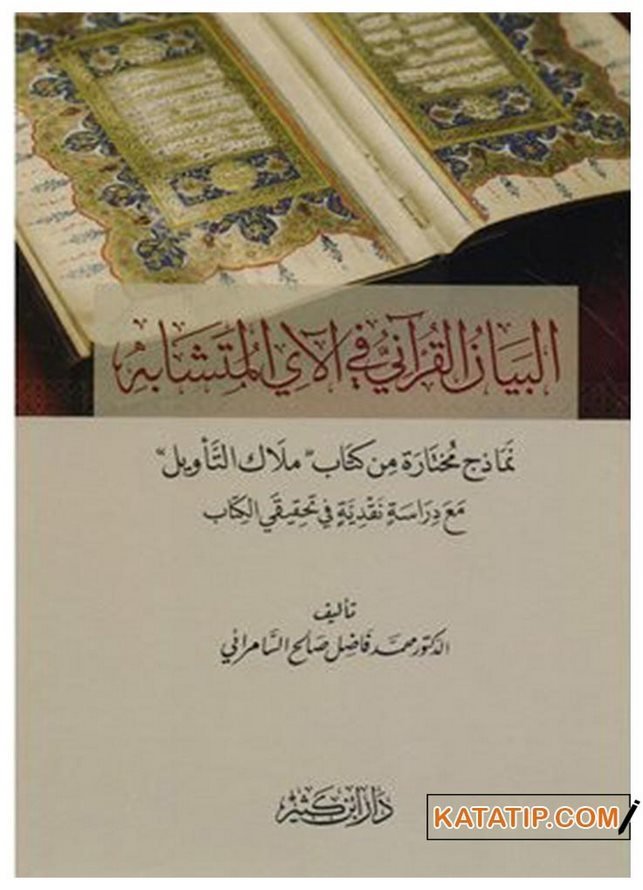 البَيَانُ القُرْآنِيُّ فِي الآيِ المُتَشَابِهِ
نَمَاذِج مُخْتَارَة مِن كِتَاب "مِلَاك التَّأويل"
مَعَ دِرَاسَةٍ نَقْدِيَّةٍ فِي تَحْقِيقَيِ الكِتَاب
تأليف
الدكتور محمد فاضل صالح السامرائي
دار ابن كثير
KATATIP.COM